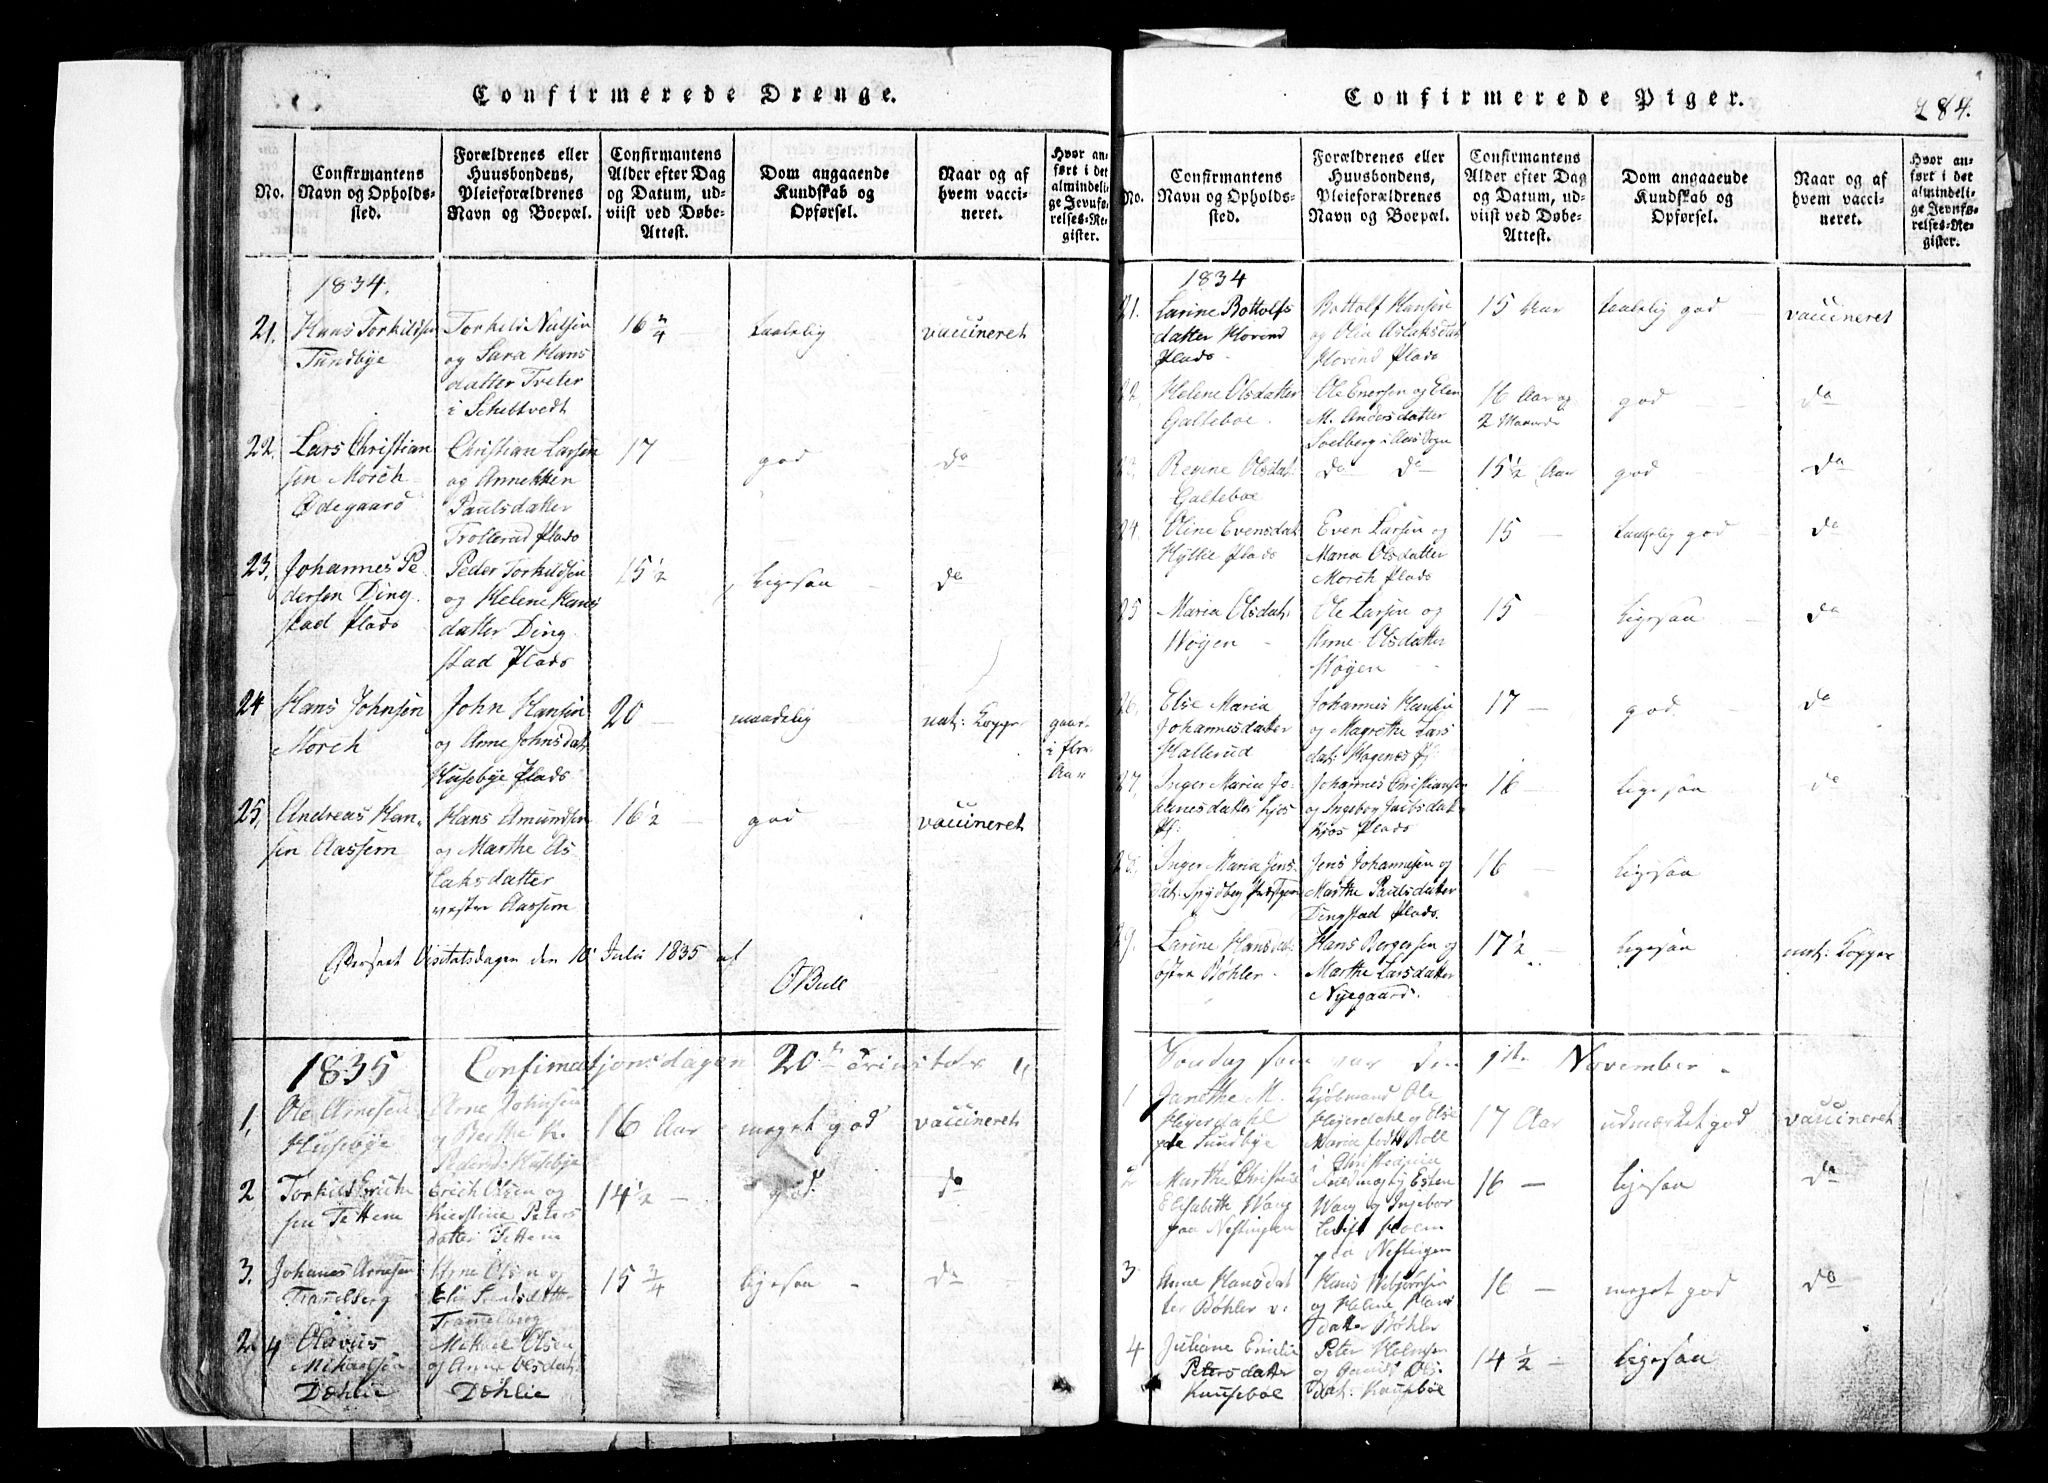 Confirmerede Drenge.
No.
Confirmantens
Navn og Opholds-
sted.
Forældrenes eller
Huusbondens,
Pleieforældrenes
Navn og Boepæl.
Confirmantens
Alder efter Dag
og Datum, ud-
viist ved Døbe-
Attest.
Dom angaaende
Kundskab og
Opførsel.
Naar og af
hvem vacci-
neret.
Hvor an-
ført i det
almindeli-
ge Jevnfø-
relses-Re-
gister.
1834.
21. Hans Torkildsen
Tundbye
Torkild Nielsen
og Sara Hans
datter Treter
i Scheltvedt
16 3/4
taalelig
vaccineret
22. Lars Christian
sen Morch
Ødegaard
Christian Larsen
og Annekken
Paulsdatter
Trollerud Plads
17
god
do
23. Johannes Pe
dersen Ding
stad Plads
Peder Torkildsen
og Helene Hans
datter Ding
stad Plads
15 1/2
ligesaa
do
24 Hans Johnsen
Morch
John Hansen
og Anne Johnsdat
Husebye Plads
20
maadelig
nat: Kopper
25. Andreas Han-
sen Aassem
Hans Amundsen
og Marthe As
laksdatter
vestre Aassem
16 1/2
god
vaccineret
Visitatsdagen den 10 Julii 1835 af
Bull
1835 Confirmatjonsdagen 20de Trinitatis
1. Ole Arnesen
Husebye
Arne Johnsen
og Berthe K.
Pedersd: Husebye
16 Aar
meget god
vaccineret
2 Torkild Erich
sen Tettem
Erich Olsen og
Kirstine Peters
datter Tettem
14 1/2 —
god
do
3. Johanes Arnesen
Tranelberg
Arne Olsen og
Tranelberg
15 3/4
ligesaa
do
4 Olavus
Mikaelsen
Dæhlie
Mikael Olsen
og Anne Olsdat
Dæhlie
Confirmerede Piger.
284.
No.
Confirmantens
Navn og Opholds-
sted.
Forældrenes eller
Huusbondens,
Pleieforældrenes
Navn og Boepæl.
Confirmantens
Alder efter Dag
og Datum, ud-
viist ved Døbe-
Attest.
Dom angaaende
Kundskab og
Opførsel.
Naar og af
hvem vacci-
neret.
Hvor an-
ført i det
almindeli-
ge Jevnfø-
relses-Re-
gister.
1834
21. Larine Bottolfs
datter Hovend
Plads
Bottolf Hansen
og Olia Aslaksdat
Hovend Plads
15 Aar
taalelig god
vaccineret
22. Helene Olsdatter
Galteboe
Ole Enersen og Elen
M. Andersdatter
Soelberg i Aas Sogn
16 Aar og
2 Maaneder
god
do
23. Renne Olsdat:
Galteboe
do do
15 1/2 Aar
god
do
24. Oline Evensdat
Hylke Plads
Even Larsen og
Maria Olsdatter
Morch Plads
15 —
taalelig god
do
25 Maria Olsdat:
Høgen
Ole Larsen og
Anne Olsdatter
Høgen
15 —
ligesaa
do
26. Else Maria
Johannesdatter
Hallerud
Johannes Hansen
og Magrethe Lars
dat: Hagenes Pl
17 —
god
do
27. Inger Maria Jo-
hanesdatter Kjos
Pl:
Johannes Christiansen
og Ingebor Jacobsdat
Kjos Plads
16 —
ligesaa
do
28. Inger Maria Jens
dat: Spydberg Præstgen
Jens Johannesen og
Marthe Paulsdatter
Dingstad Plads
16 —
ligesaa
29. Larine Hansdat.
østre Bøhler
Hans Bergersen og
Marthe Larsdatter
Nyegaard.
17 1/2 —
ligesaa
nat: Kopper
Søndag som var den 1ste November.
1 Janethe M.
Heyerdahl
paa Tundbye
Kjøbmand Ole
Heyerdahl og Else
Maria født Roll
i Christiania
17 Aar
udmærket god
vaccineret
2 Marthe Christine
Elisabeth Wang
paa Neslingen
Esten
Wang og Ingebor
Holm
paa Neslingen
16 —
ligesaa
do
3 Anne Hansdat
ter Bøhler
Hans
og Helene Hans
datter Bøhler
16 —
meget god
do
4 Juliane Emilie
Petersdatter
Kauseboe
Peter
og Ols
dat:
14 1/2 —
ligesaa